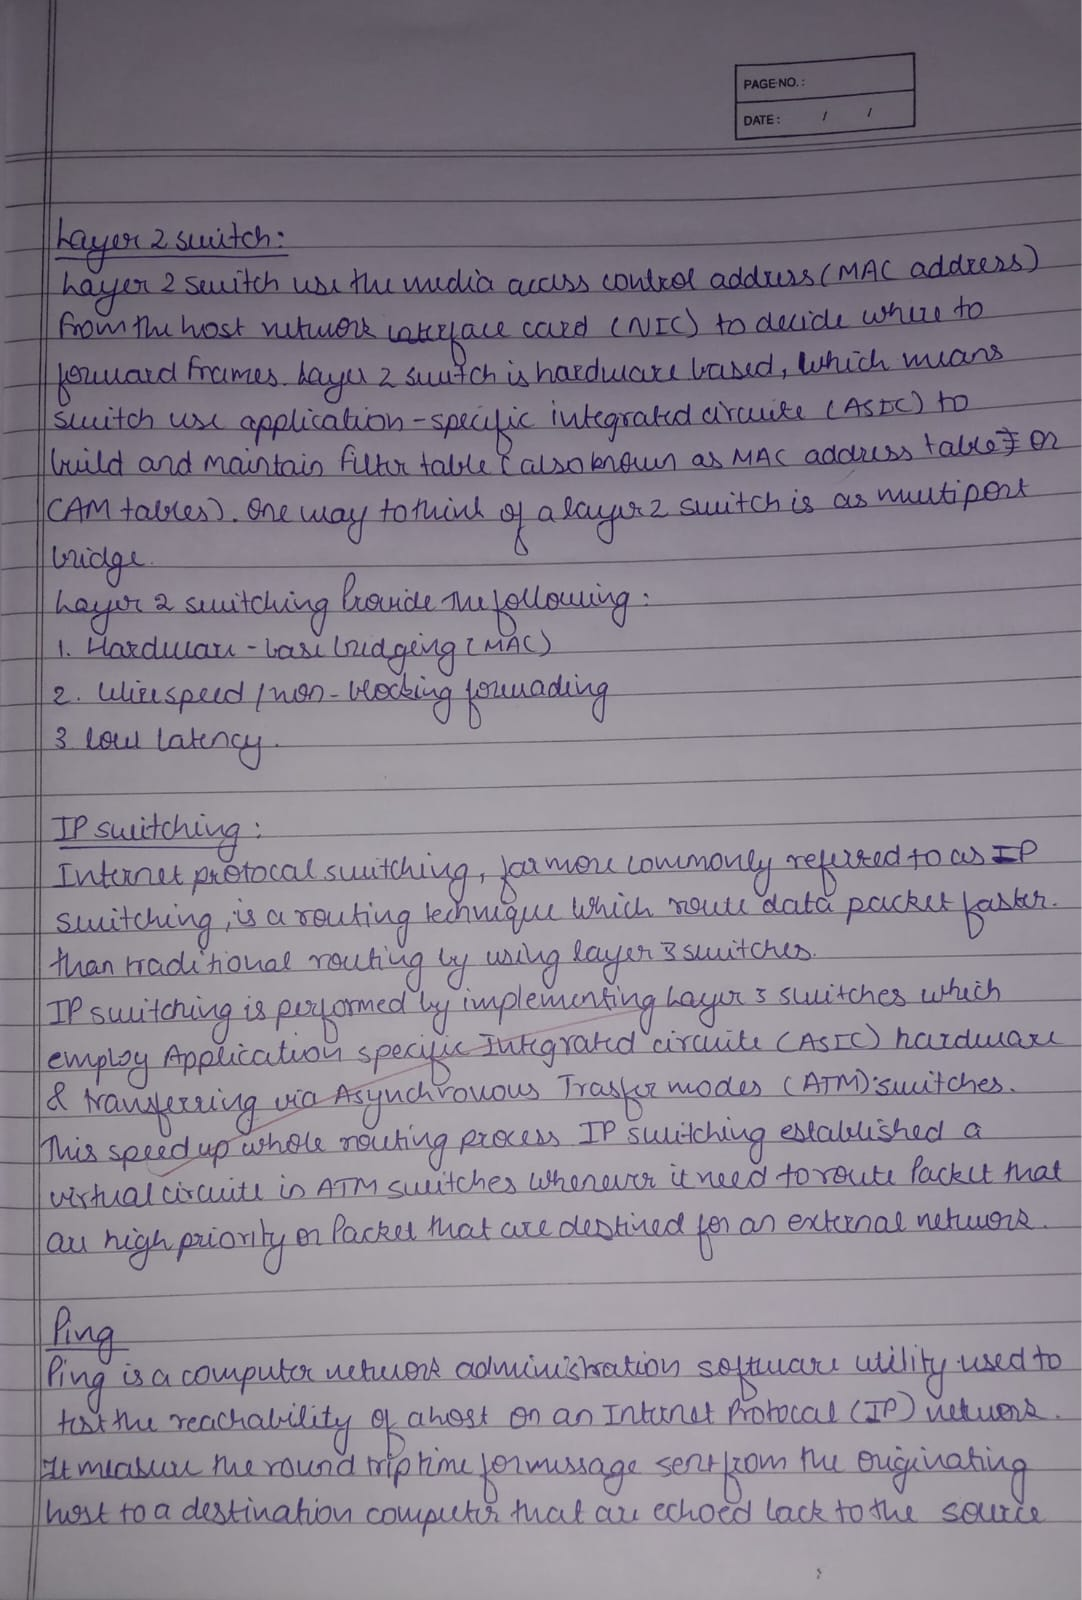 PAGE NO.:
DATE: / /
Layer 2 switch:
Layer 2 switch use the media access control address (MAC address)
from the host network interface card (NIC) to decide where to
forward frames. Layer 2 switch is hardware based, which means
switch use application-specific integrated circuite (ASIC) to
build and maintain filter table (also known as MAC address table or
CAM tables). One way to think of a layer 2 switch is as multiport
bridge.
Layer 2 switching Provide the following:
1. Hardware-base bridgeing (MAC)
2. Wirespeed / non-blocking forwading
3 low latency.
IP switching:
Internet protocal switching, far more commonly referred to as IP
switching, is a routing technique which route data packet faster.
than traditional routing by using layer 3 switches.
IP switching is performed by implementing Layer 3 switches which
employ Application specific Integrated circuite (ASIC) hardware
& transferring via Asynchronous Trasfer modes (ATM) switches.
This speed up whole routing process IP switching established a
virtual circuite in ATM switches whenever it need to route Packet that
are high priority or Packet that are destined for an external network.
Ping
Ping is a computer network administration software utility used to
test the reachability of a host on an Internet Protocal (IP) network.
It measure the round trip time for message sent from the originating
host to a destination computer that are echoed back to the source